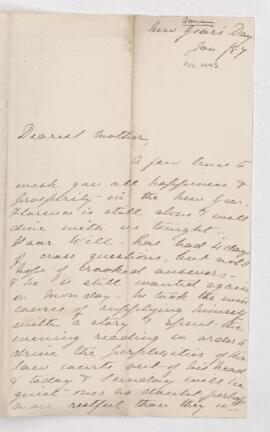 Anna
New Year's Day
Jan /87
Acc. 1993
Dearest Mother,
A few lines to
wish you all happiness &
prosperity in the New Year -
Florence is still alone & will
dine with us tonight -
Poor Will - has had 4 days
of cross questions, but not I
hope of crooked answers -
& he is still wanted again
on Monday - he took the wise
course of supplying himself
with a story & spent the
evening reading in order to
drive the perplexities of the
law courts out of his head
& today & Sunday will be
quiet ones no doubt perhaps
more restful than they